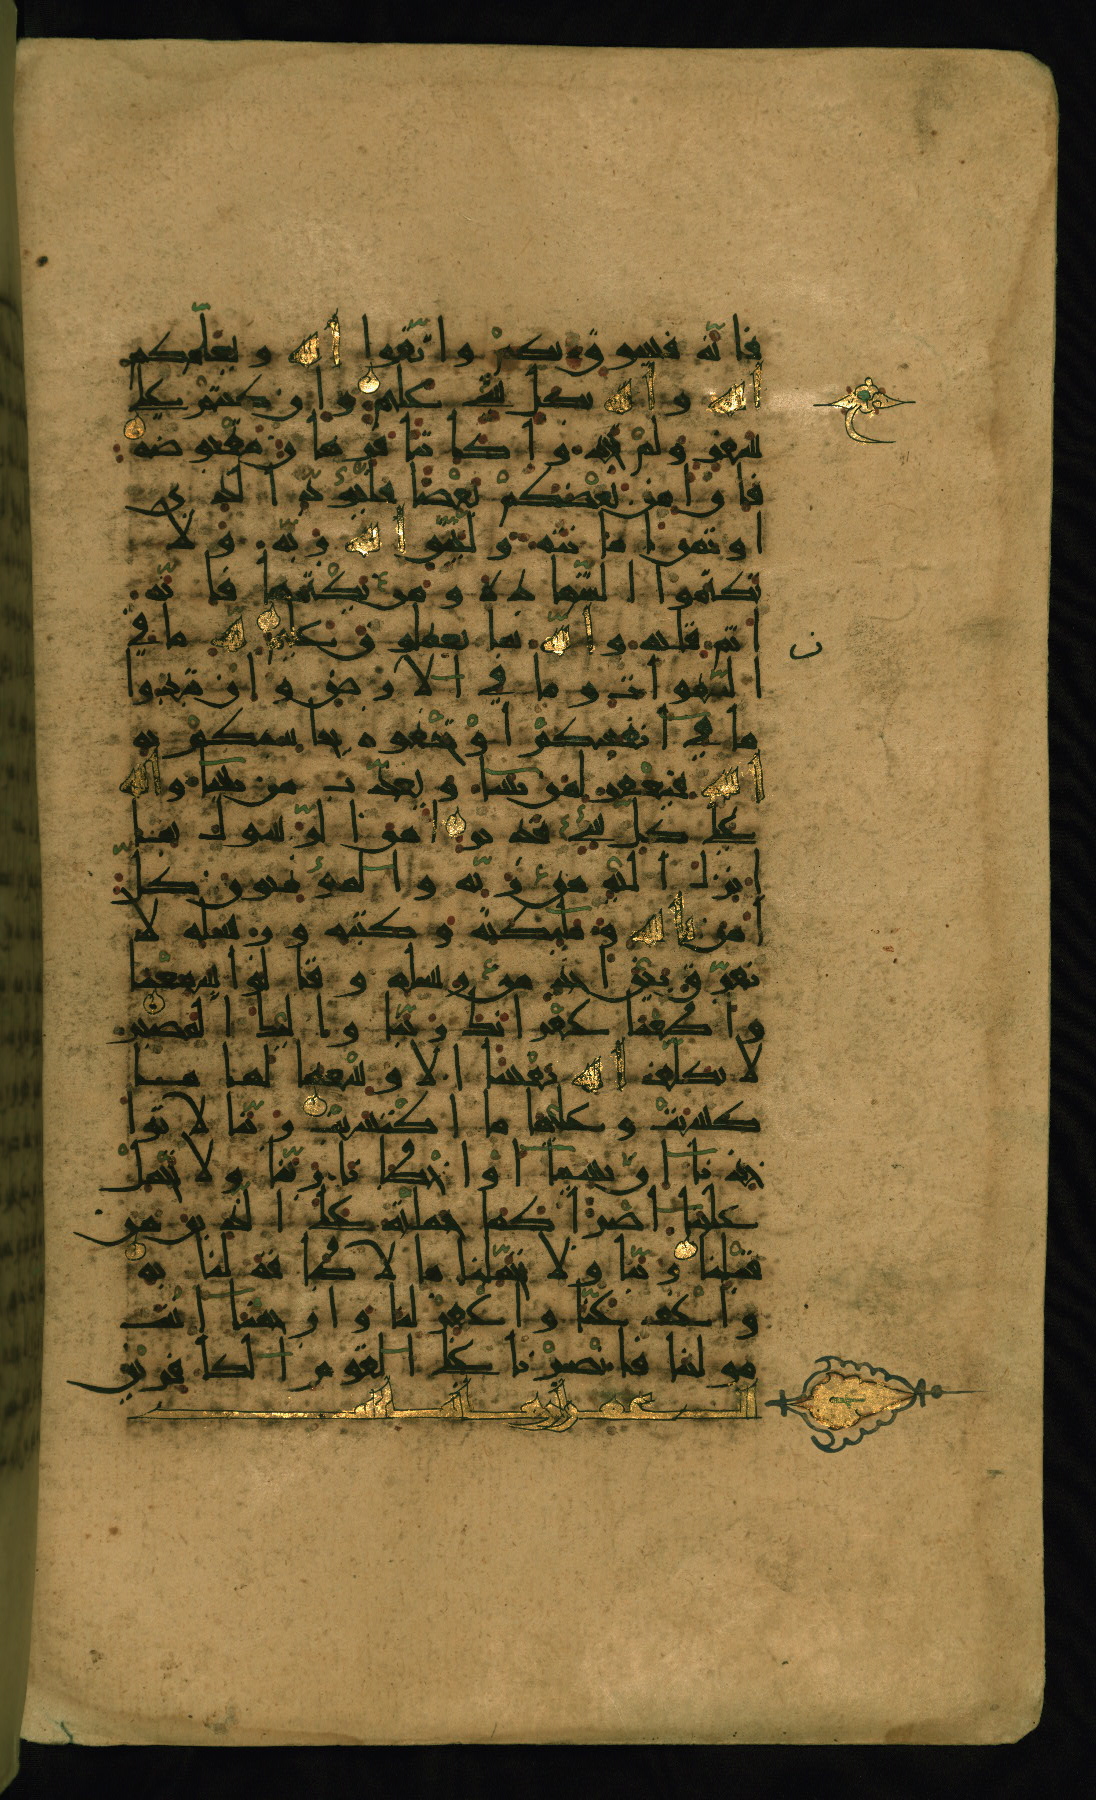 فانه فسوق بكم واتقوا الله ويعلمكم
الله والله بكل شي عليم وان كنتم على
سفر ولم تجدوا كاتبا فرهان مقبوضه
فان امن بعضكم بعضا فليؤد الذى
اوتمن امانته وليتق الله ربه ولا
تكتموا الشهاده ومن يكتمها فانه
اثم قلبه والله بما تعملون عليم لله ما في
السموات وما في الارض وان تبدوا
ما في انفسكم او تخفوه يحاسبكم به
الله فيغفر لمن يشا ويعذب من يشا والله
على كل شي قدير امن الرسول بما
انزل اليه من ربه والمؤمنون كل
امن بالله وملىكته وكتبه ورسله لا
نفرق بين احد من رسله وقالوا سمعنا
واطعنا غفرانك ربنا واليك المصير
لا يكلف الله نفسا الا وسعها لها ما
كسبت وعليها ما اكتسبت ربنا لا توا
خذنا ان نسينا او اخطانا ربنا ولا تحمل
علينا اصرا كما حملته على الذين من
قبلنا ربنا ولا تحملنا ما لا طاقه لنا به
واعف عنا واغفر لنا وارحمنا انت
مولنا فانصرنا على القوم الكافرين
ن